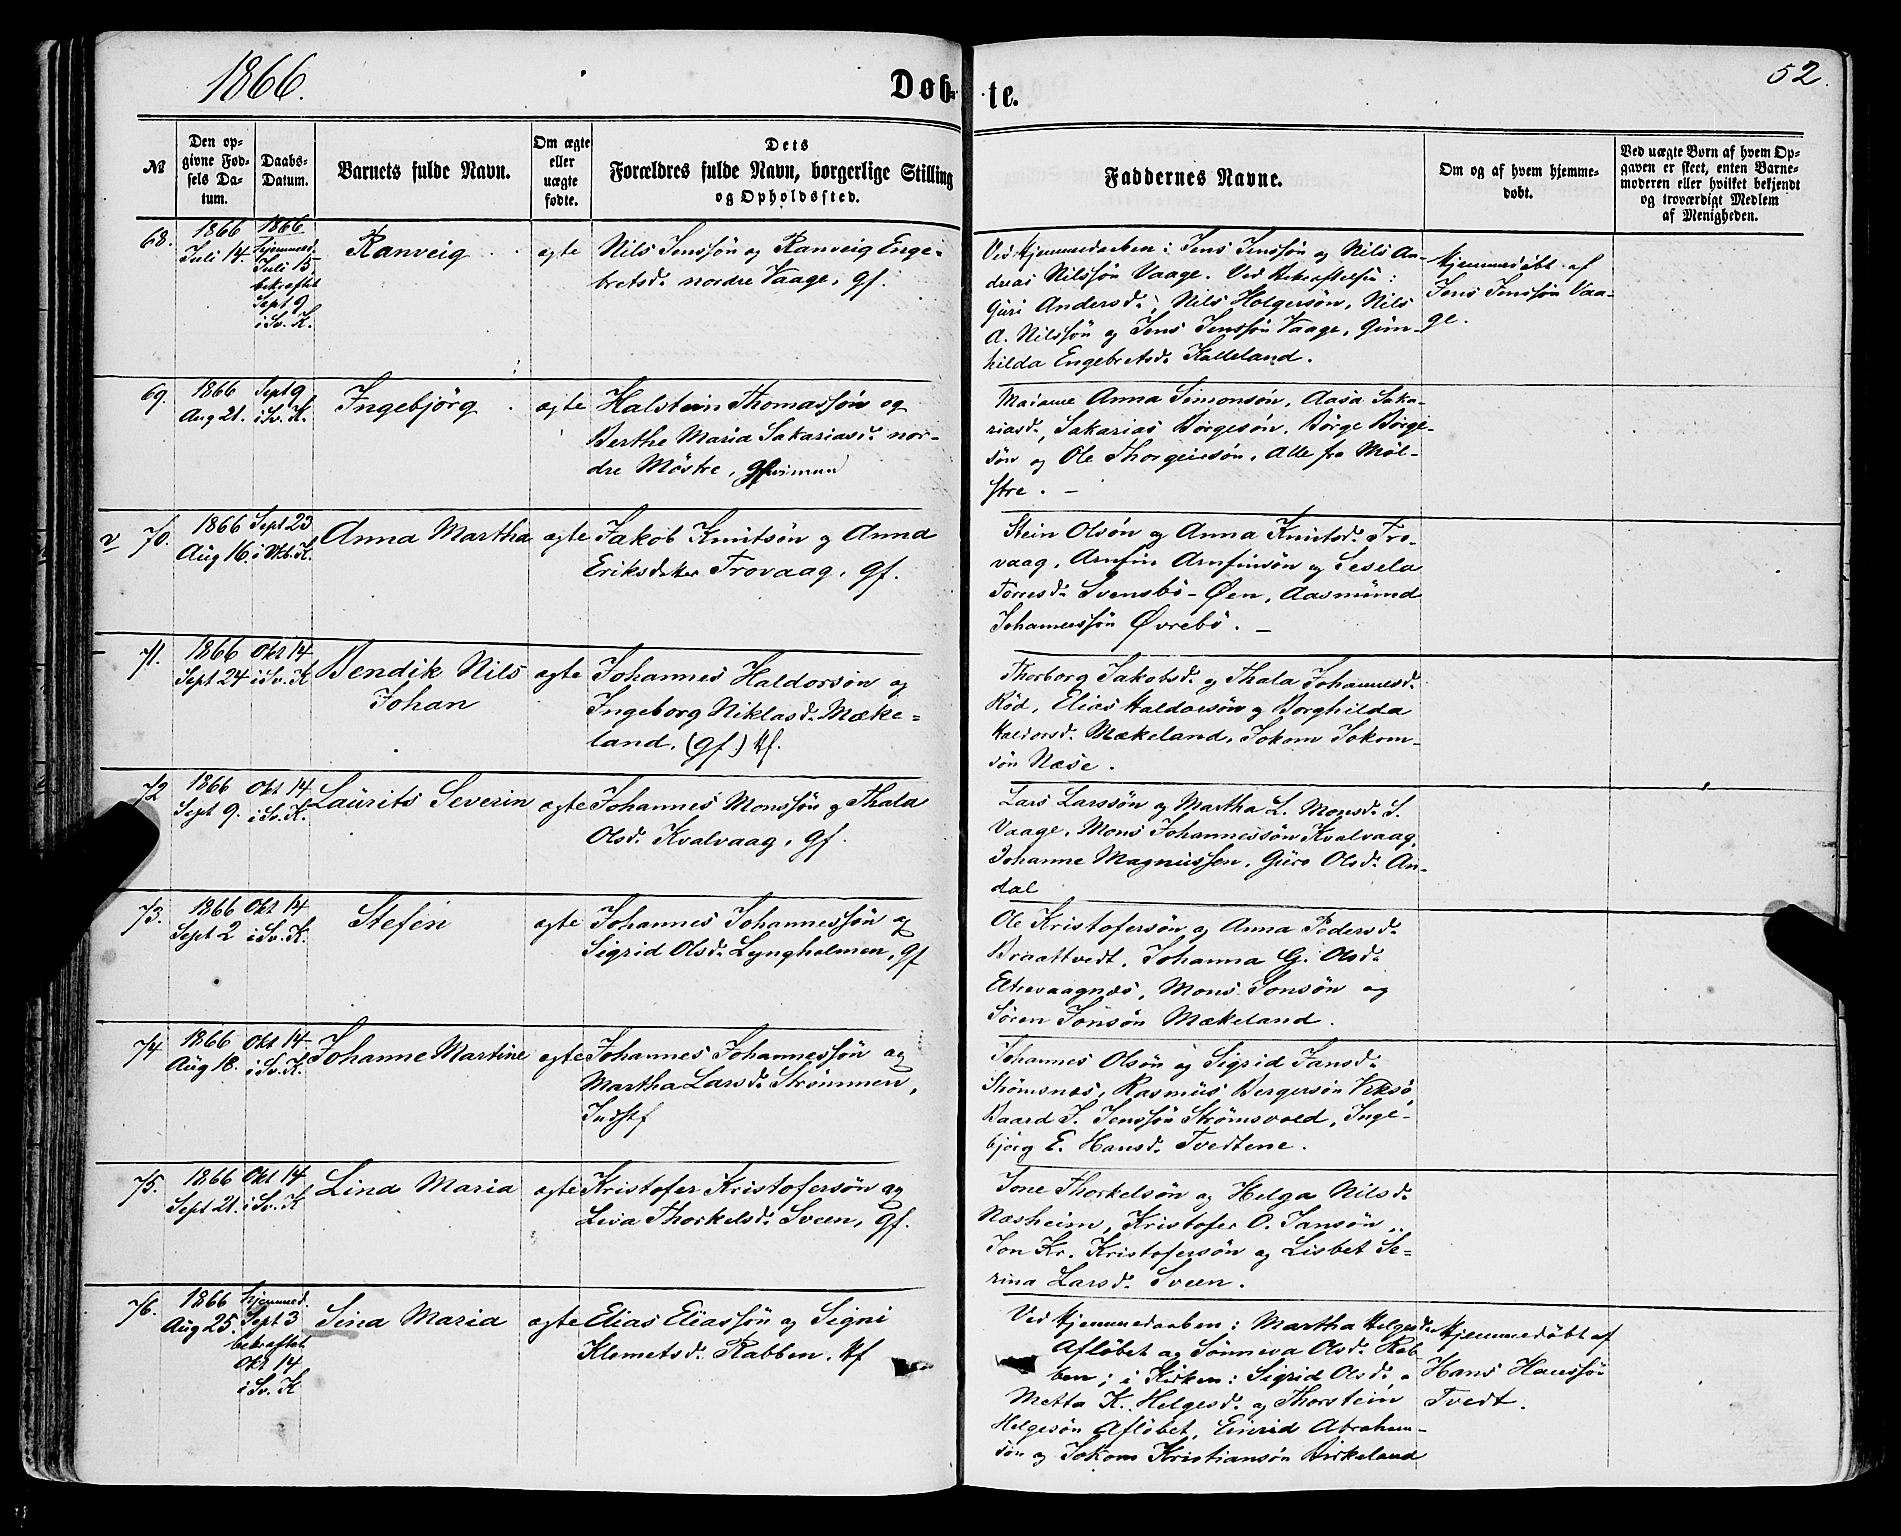 1866.
Døbte.
52.
№
Den opgivne Fødsels Datum.
Daabs-Datum.
Barnets fulde Navn.
Om ægte eller uægte fødte.
Dets Forældres fulde Navn, borgerlige Stilling og Opholdssted.
Faddernes Navne.
Om og af hvem hjemmedøbt.
Ved uægte Børn af hvem Opgaven er skeet, enten Barnemoderen eller hvilket bekjendt og troværdigt Medlem af Menigheden.
68.
1866
Juli 14.
1866
Hjemmed.
Juli 15
bekræftet
Sept 9
i Sv. K.
Ranveig
ægte
Nils Jenssøn og Ranveig Enge-
bretsd. nordre Vaage, gf.
Ved Hjemmedaaben: Jens Jenssøn og Nils An-
dreas Nilssøn Vaage. Ved Bekræftelsen:
Guri Andersd., Nils Holgersøn, Nils
A. Nilssøn og Jens Jenssøn Vaage, Gun-
hilda Engebretsd. Kalleland.
Hjemmedøbt af
Jens Jenssøn Vaa-
ge.
69.
1866
Aug 21.
Sept 9
i Sv. K.
Ingebjörg
ægte
Halstein Thomassøn og
Berthe Maria Sakariasd. nor-
dre Møstre,
Madame Anna Simonsøn, Aasa Saka-
riasd., Sakarias Børgesøn, Børge Børge-
søn og Ole Thorgeirsøn, Alle fra Møl-
stre. –
v 70.
1866
Aug 16.
Sept 23
i Utb. K.
Anna Martha
ægte
Jakob Knutsøn og Anna
Eriksdatter Trovaag, gf.
Stein Olsøn og Anna Knutsd. Tro-
vaag, Arnfin Arnfinsøn og Sesela
Torresd. Svensbö-Øen, Aasmund
Johannessøn Øvrebö. –
71.
1866
Sept 24
Okt 14
i Sv. K
Bendik Nils
Johan
ægte
Johannes Haldorsøn og
Ingeborg Niklasd. Mæke-
land, (gf.) Hf.
Thorborg Jakobsd. og Thala Johannesd.
Röd, Elias Haldorsøn og Borghilda
Haldorsd. Mækeland, Jokom Jokom-
søn Næse.
72
1866
Sept 9.
Okt 14
i Sv. K.
Laurits Severin
ægte
Johannes Monssøn og Thala
Olsd. Kvalvaag, gf.
Lars Larssøn og Martha L. Monsd. S.
Vaage, Mons Johannessøn Kvalvaag,
Johanne Magnussen, Guro Olsd. An-
dal
73.
1866
Sept 2
Okt 14
i Sv. K.
Stefen
ægte
Johannes Johannessøn og
Sigrid Olsd. Lyngholmen, gf
Ole Kristofersøn og Anna Pedersd.
Braattvedt, Johanna G. Olsd.
Eltravaagnæs, Mons Jonsøn og
Søren Jonsøn Mækeland.
74
1866
Aug 18.
Okt 14
i Sv. K.
Johanne Martine
ægte
Johannes Johannessøn og
Martha Larsd. Strømmen,
Indstf
Johannes Olsøn og Sigrid Jansd.
Strømsnæs, Rasmus Bergersøn Viksö,
Baard J. Jenssøn Strømsvold, Inge-
bjørg E. Hansd. Tvedtene.
75.
1866
Sept 21.
Okt 14
i Sv. K
Lina Maria
ægte
Kristofer Kristofersøn og
Liva Thorkelsd. Sveen, gf.
Tone Thorkelsøn og Helga Nilsd.
Næsheim, Kristofer O. Jansøn,
Jon Kr. Kristofersøn og Lisbet Se-
rina Larsd. Sveen.
76.
1866
Aug 25.
Hjemmed.
Sept 3
bekræftet
Okt 14
i Sv. K
Sina Maria
ægte
Elias Eliassøn og Signi
Klemetsd. Rabben. Hf
Ved Hjemmedaaben: Martha Helgesd.
Afløbet og Sönneva Olsd. Rab-
ben; i Kirken: Sigrid Olsd.,
Metta K. Helgesd. og Thorstein
Helgesøn Afløbet, Einrid Abraham-
søn og Jokom Kristiansøn Birkeland
Hjemmedøbt af
Hans Hanssøn
Tvedt.